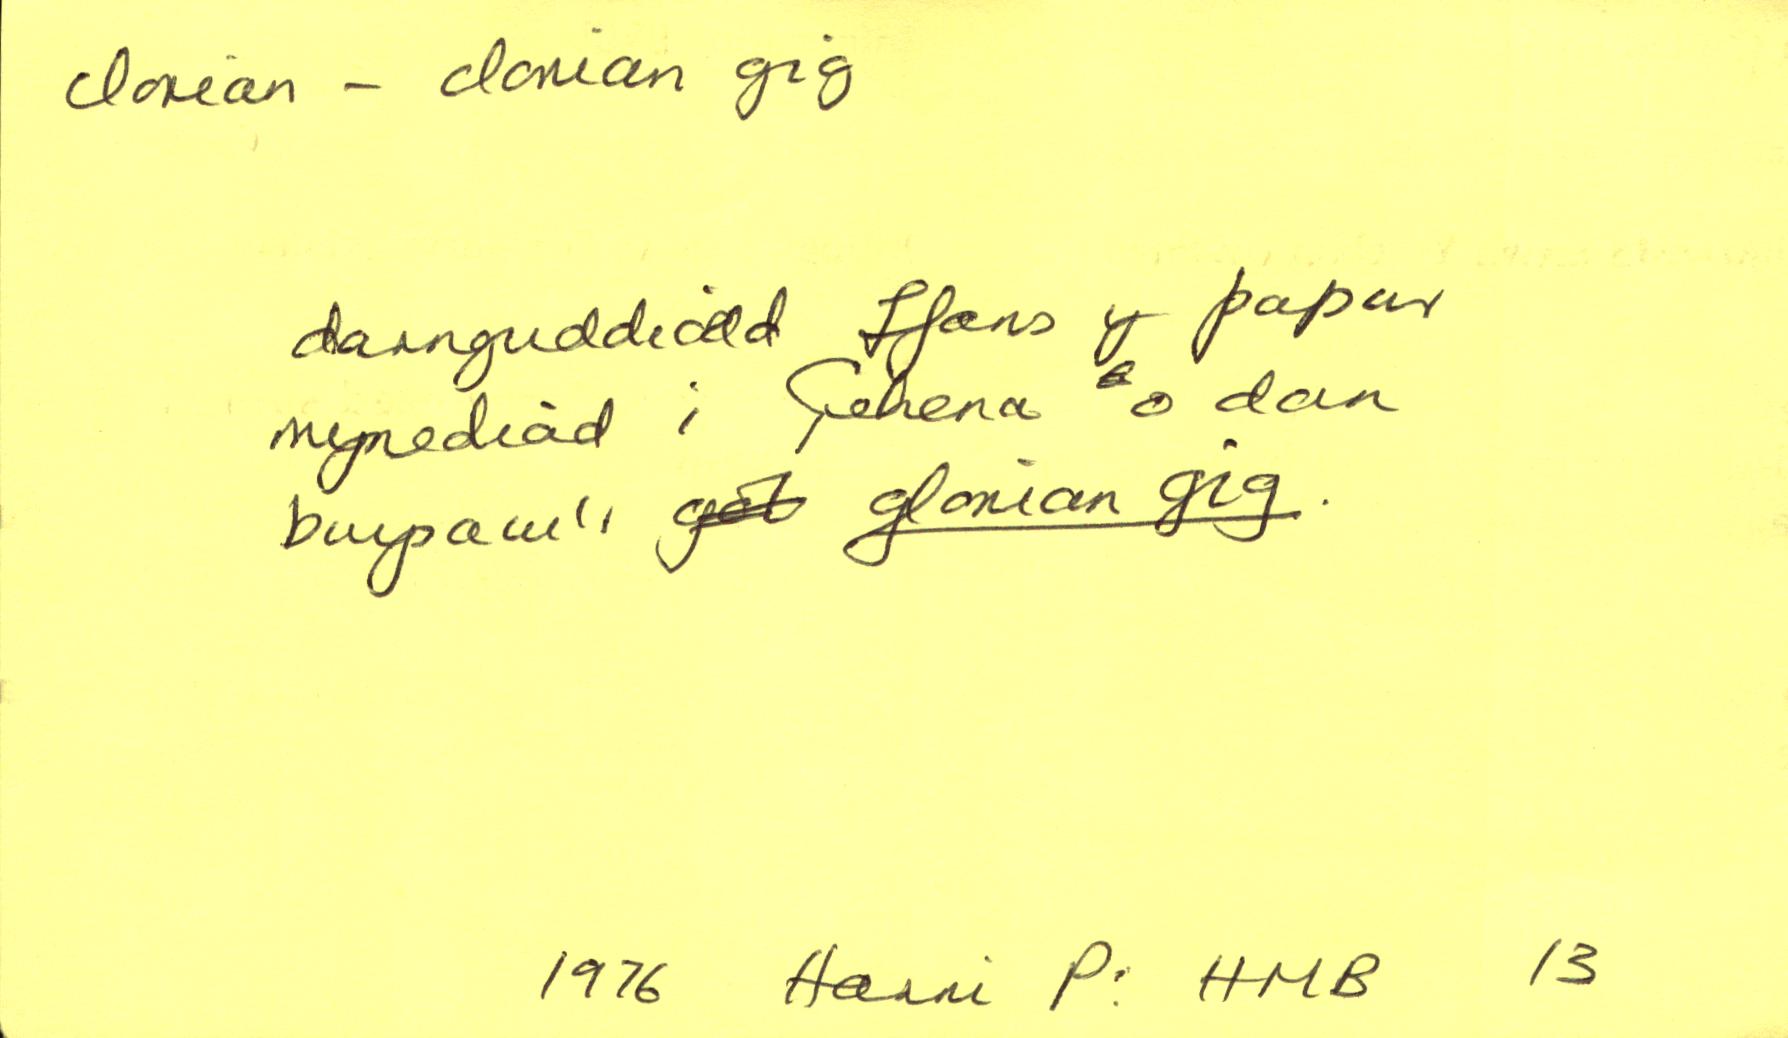 clorian – clorian gig
darnguddiodd Ifans y papur
mynediad i Gehena o dan
bwysau'i glorian gig.
1976 Harri P: HMB 13